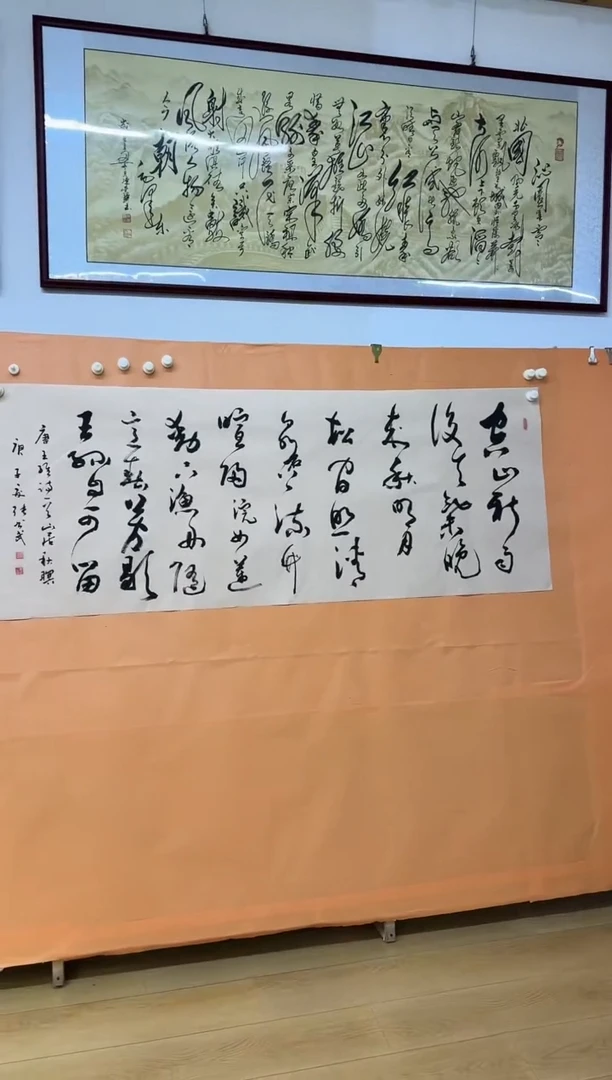 沁园春雪
北国风光千里冰封万里
雪飘望长城内外惟余莽莽
大河上下顿失滔滔
山舞银蛇原驰蜡象欲
与天公试比高
须晴日看红装素
裹分外妖娆
江山如此多娇引
无数英雄竞折腰
惜秦皇汉武
略输文采唐宗宋祖稍
逊风骚一代天骄
成吉思汗只识弯弓
射大雕俱往矣数
风流人物还看
今朝 毛泽东
空山新雨
後天气晚
来秋明月
松间照清
泉石上流竹
喧归浣女莲
动下渔舟随
意春芳歇
王孙自可留
唐王维诗一首山居秋暝